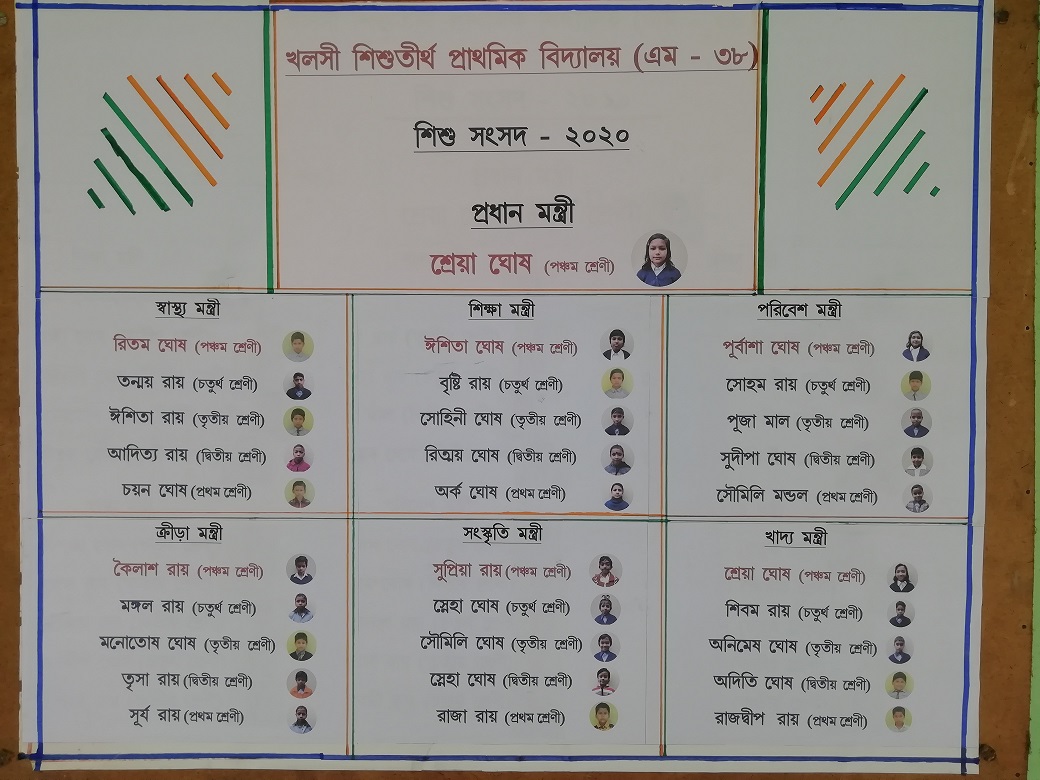 খলসী শিশুতীর্থ প্রাথমিক বিদ্যালয় (এম - ৩৮)
শিশু সংসদ - ২০২০
প্রধান মন্ত্রী
শ্রেয়া ঘোষ (পঞ্চম শ্রেণী)
স্বাস্থ্য মন্ত্রী
রিতম ঘোষ (পঞ্চম শ্রেণী)
তন্ময় রায় (চতুর্থ শ্রেণী)
ঈশিতা রায় (তৃতীয় শ্রেণী)
আদিত্য রায় (দ্বিতীয় শ্রেণী)
চয়ন ঘোষ (প্রথম শ্রেণী)
শিক্ষা মন্ত্রী
ঈশিতা ঘোষ (পঞ্চম শ্রেণী)
বৃষ্টি রায় (চতুর্থ শ্রেণী)
সোহিনী ঘোষ (তৃতীয় শ্রেণী)
রিত্ময় ঘোষ (দ্বিতীয় শ্রেণী)
অর্ক ঘোষ (প্রথম শ্রেণী)
পরিবেশ মন্ত্রী
পূর্বাশা ঘোষ (পঞ্চম শ্রেণী)
সোহম রায় (চতুর্থ শ্রেণী)
পূজা মাল (তৃতীয় শ্রেণী)
সুদীপা ঘোষ (দ্বিতীয় শ্রেণী)
সৌমিলি মন্ডল (প্রথম শ্রেণী)
ক্রীড়া মন্ত্রী
কৈলাশ রায় (পঞ্চম শ্রেণী)
মঙ্গল রায় (চতুর্থ শ্রেণী)
মনোতোষ ঘোষ (তৃতীয় শ্রেণী)
তৃসা রায় (দ্বিতীয় শ্রেণী)
সূর্য রায় (প্রথম শ্রেণী)
সংস্কৃতি মন্ত্রী
সুপ্রিয়া রায় (পঞ্চম শ্রেণী)
স্নেহা ঘোষ (চতুর্থ শ্রেণী)
সৌমিলি ঘোষ (তৃতীয় শ্রেণী)
স্নেহা ঘোষ (দ্বিতীয় শ্রেণী)
রাজা রায় (প্রথম শ্রেণী)
খাদ্য মন্ত্রী
শ্রেয়া ঘোষ (পঞ্চম শ্রেণী)
শিবম রায় (চতুর্থ শ্রেণী)
অনিমেষ ঘোষ (তৃতীয় শ্রেণী)
অদিতি ঘোষ (দ্বিতীয় শ্রেণী)
রাজদ্বীপ রায় (প্রথম শ্রেণী)